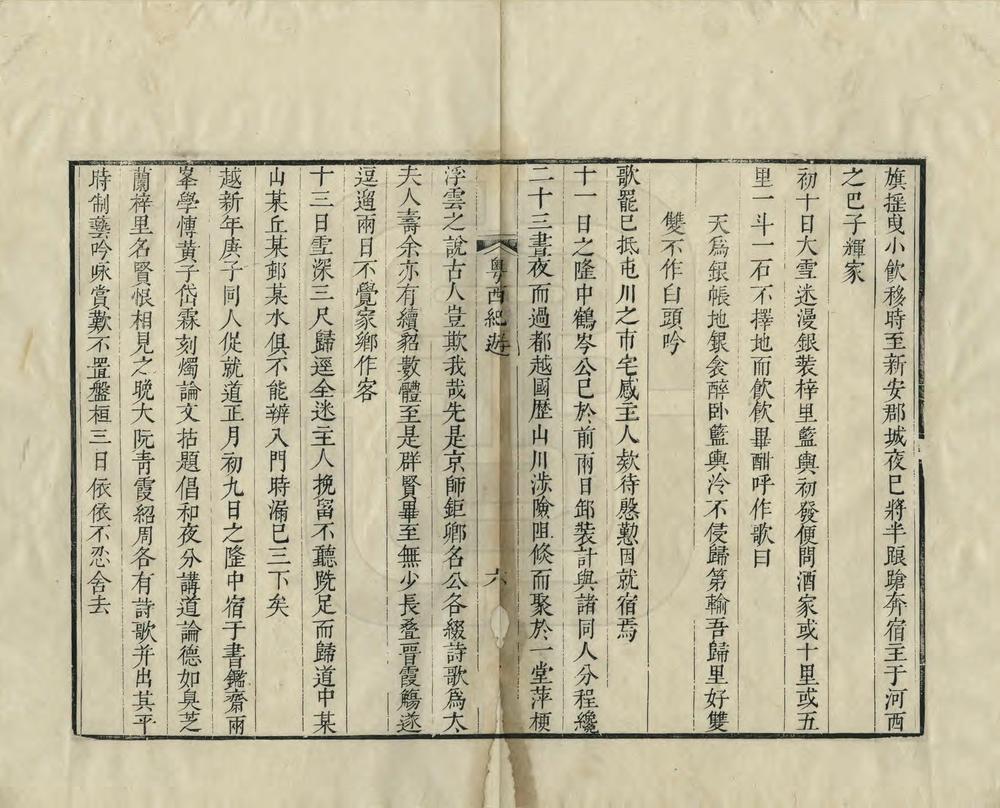 旗摇曳小飲移時至新安郡城夜已將半踉蹌奔宿主于河西
之巴子輝家
初十日大雪迷漫銀裝梓里籃輿初發便問酒家或十里或五
里一斗一石不擇地而飲飲畢酣呼作歌曰
天爲銀帳地銀衾醉卧籃輿冷不侵歸第輸吾歸里好雙
雙不作白頭吟
歌罷已抵屯川之市宅感主人欵待慇懃因就宿焉
十一日之隆中鶴岑公已於前兩日卸裝計與諸同人分程纔
二十三晝夜而過都越國歷山川涉險阻倐而聚於一堂萍梗
粤西紀遊
六
浮雲之說古人豈欺我哉先是京師鉅卿名公各綴詩歌爲太
夫人壽余亦有續貂數體至是群賢畢至無少長叠晉霞觴遂
逗遛兩日不覺家鄉作客
十三日雪深三尺歸逕全迷主人挽留不聽跣足而歸道中某
山某丘某郵某水俱不能辨入門時漏已三下矣
越新年庚子同人促就道正月初九日之隆中宿于書鑑齋兩
峯學博黃子岱霖刻燭論文拈題倡和夜分講道論德如臭芝
蘭梓里名賢恨相見之晚大阮靑霞紹周各有詩歌并出其平
時制藝吟咏賞歎不置盤桓三日依依不忍舍去